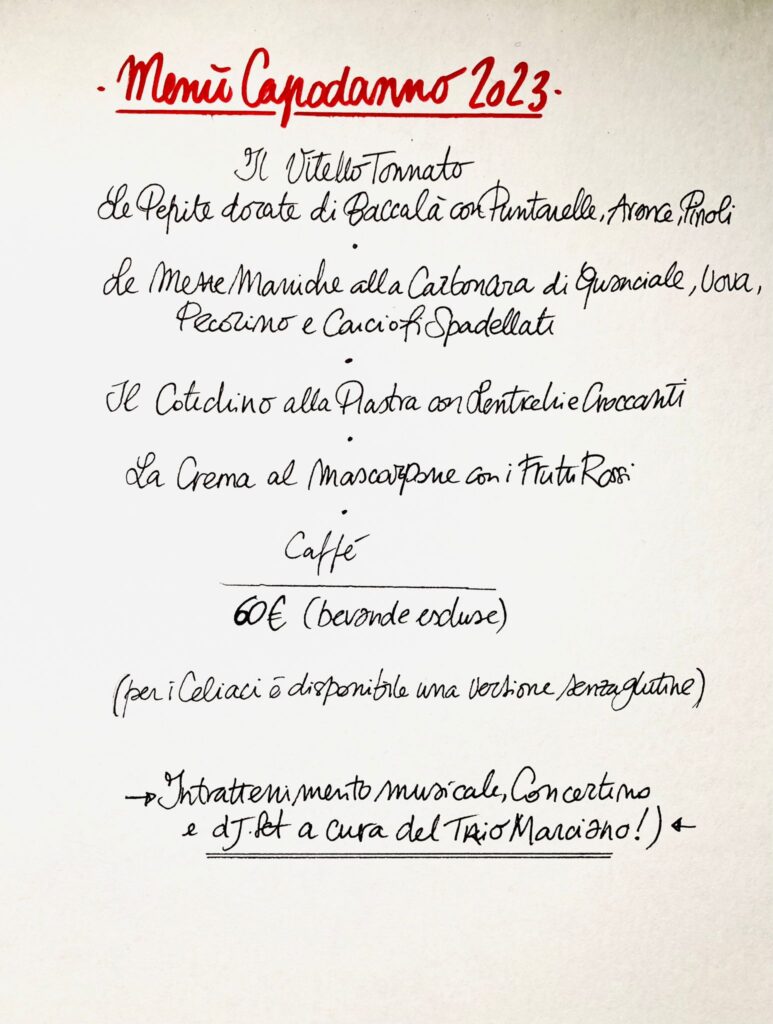 · Menù Capodanno 2023 ·
Il Vitello Tonnato
Le Pepite dorate di Baccalà con Puntarelle, Arance, Pinoli
·
Le Mezze Maniche alla Carbonara di Guanciale, Uova,
Pecorino e Carciofi Spadellati
·
Il Cotechino alla Piastra con Lenticchie Croccanti
·
La Crema al Mascarpone con i Frutti Rossi
·
Caffé
60€ (bevande escluse)
(per i Celiaci é disponibile una versione senza glutine)
→ Intrattenimento musicale, Concertino
e dJ.set a cura del Trio Marciano!) ←